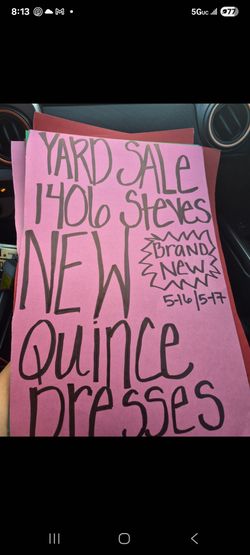 8:13
5Guc
77
YARD SALE
1406 Steves
NEW
Brand
New
5-16/5-17
Quince
Dresses